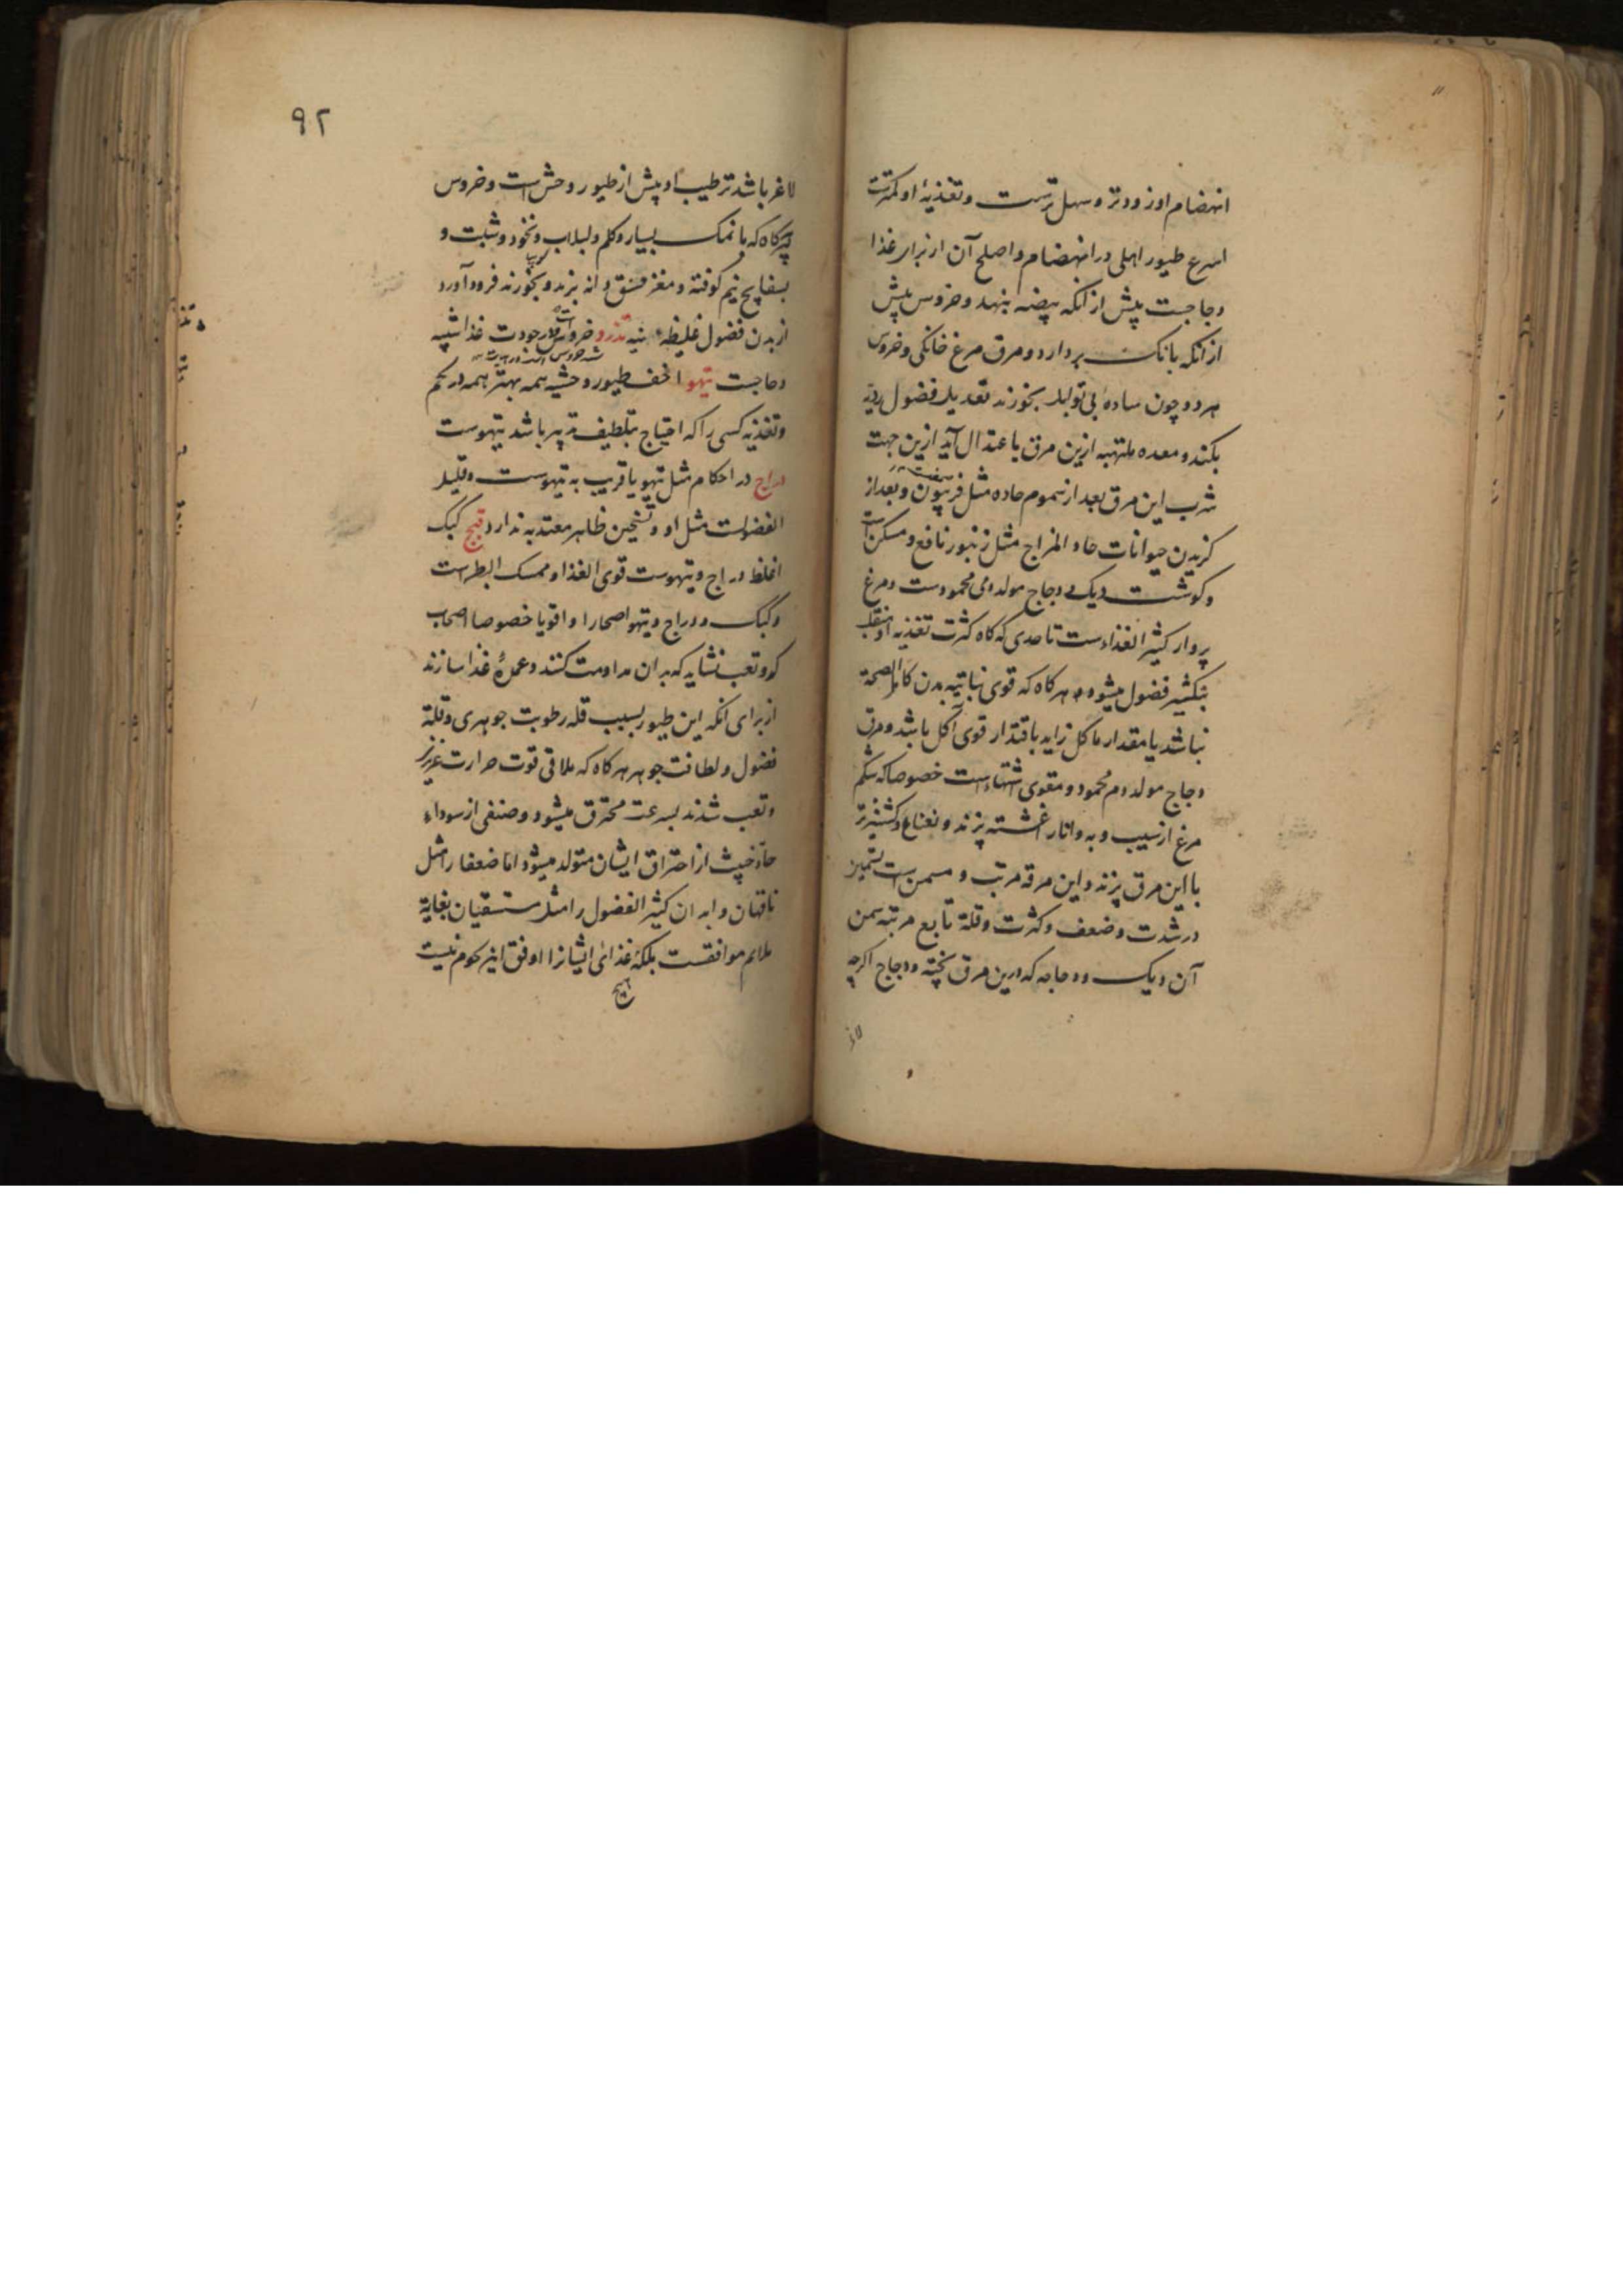 انهضام او زودتر و سهل ترست و تغذیهٔ او کمترست
اسرع طیور اهلی در انهضام و اصلح آن از برای غذا
دجاجست پیش از آنکه بیضه بنهد و خروس پیش
از آنکه بانک بردارد و مرق مرغ خانکی و خروس
هر دو چون ساده بی توابل بخورند تعدیل فضول ردیه
بکند و معده ملتهبه ازین مرق باعتدال آید ازین جهت
شرب این مرق بعد از سموم حاده مثل فربیون و بعد از
کزیدن حیوانات حاد المزاج مثل زنبور نافع و مسکن است
و کوشت دیک و دجاج مولد دمی محمودست و مرغ
پروار کثیر الغذاءست تا حدی که کاه کثرت تغذیه او منقلب
بتکثیر فضول میشود هر کاه که قوی نباتیه بدن کامل الصحة
نباشد یا مقدار ماکل زاید باقتدار قوی آکل باشد و مرق
دجاج مولد دم محمود و مقوی اشتهاء است خصوصا که شکم
مرغ از سیب و به و انار اغشته پزند و نعناع و کشنیز تر
با این مرق پزند و این مرقه مرتب و مسمن است تسمین
در شدت و ضعف و کثرت و قلة تابع مرتبه سمن
آن دیک و دجاجه که ازین مرق پخته و دجاج اکرچه
لاغر
۹۲
لاغر باشد ترطیب او بیش از طیور وحش است و خروس
پیر کاه که با نمک بسیار و کلم و لبلاب و نخود و شبت و
بسفایج نیم کوفته و مغز فستق دانه بزند و بخورند فرود آورد
از بدن فضول غلیظه نیه تذرو خروس در جودت غذا شبیه
دجاجست تیهو اخف طیور وحشیه همه بهتر همه در لحم
و تغذیه کسی را که احتیاج بتلطیف تدبیر باشد تیهوست
دراج در احکام مثل تیهو یا قریب به تیهوست و قلیل
الفضولست مثل او و تسخین ظاهر معتد به ندارد قبج کبک
اغلظ دراج و تیهوست قوی الغذا و ممسک البطن است
و کبک و دراج و تیهو اصحا را و اقویا خصوصا اصحاب
کد و تعب نشاید که بدان مداومت کنند و عمدهٔ غذا سازند
از برای آنکه این طیور بسبب قله رطوبت جوهری و قلة
فضول و لطافت جوهر هر کاه که ملاقی قوت حرارت غریزی
و تعب شدند بسرعت محترق میشود و صنفی از سوداء
حاد خبیث از احتراق ایشان متولد میشود اما ضعفا را مثل
ناقهان و ابدان کثیر الفضول را مثل مستسقیان بغایة
ملایم موافقست بلکه غذای ایشانرا اوفق ازین لحوم نیست